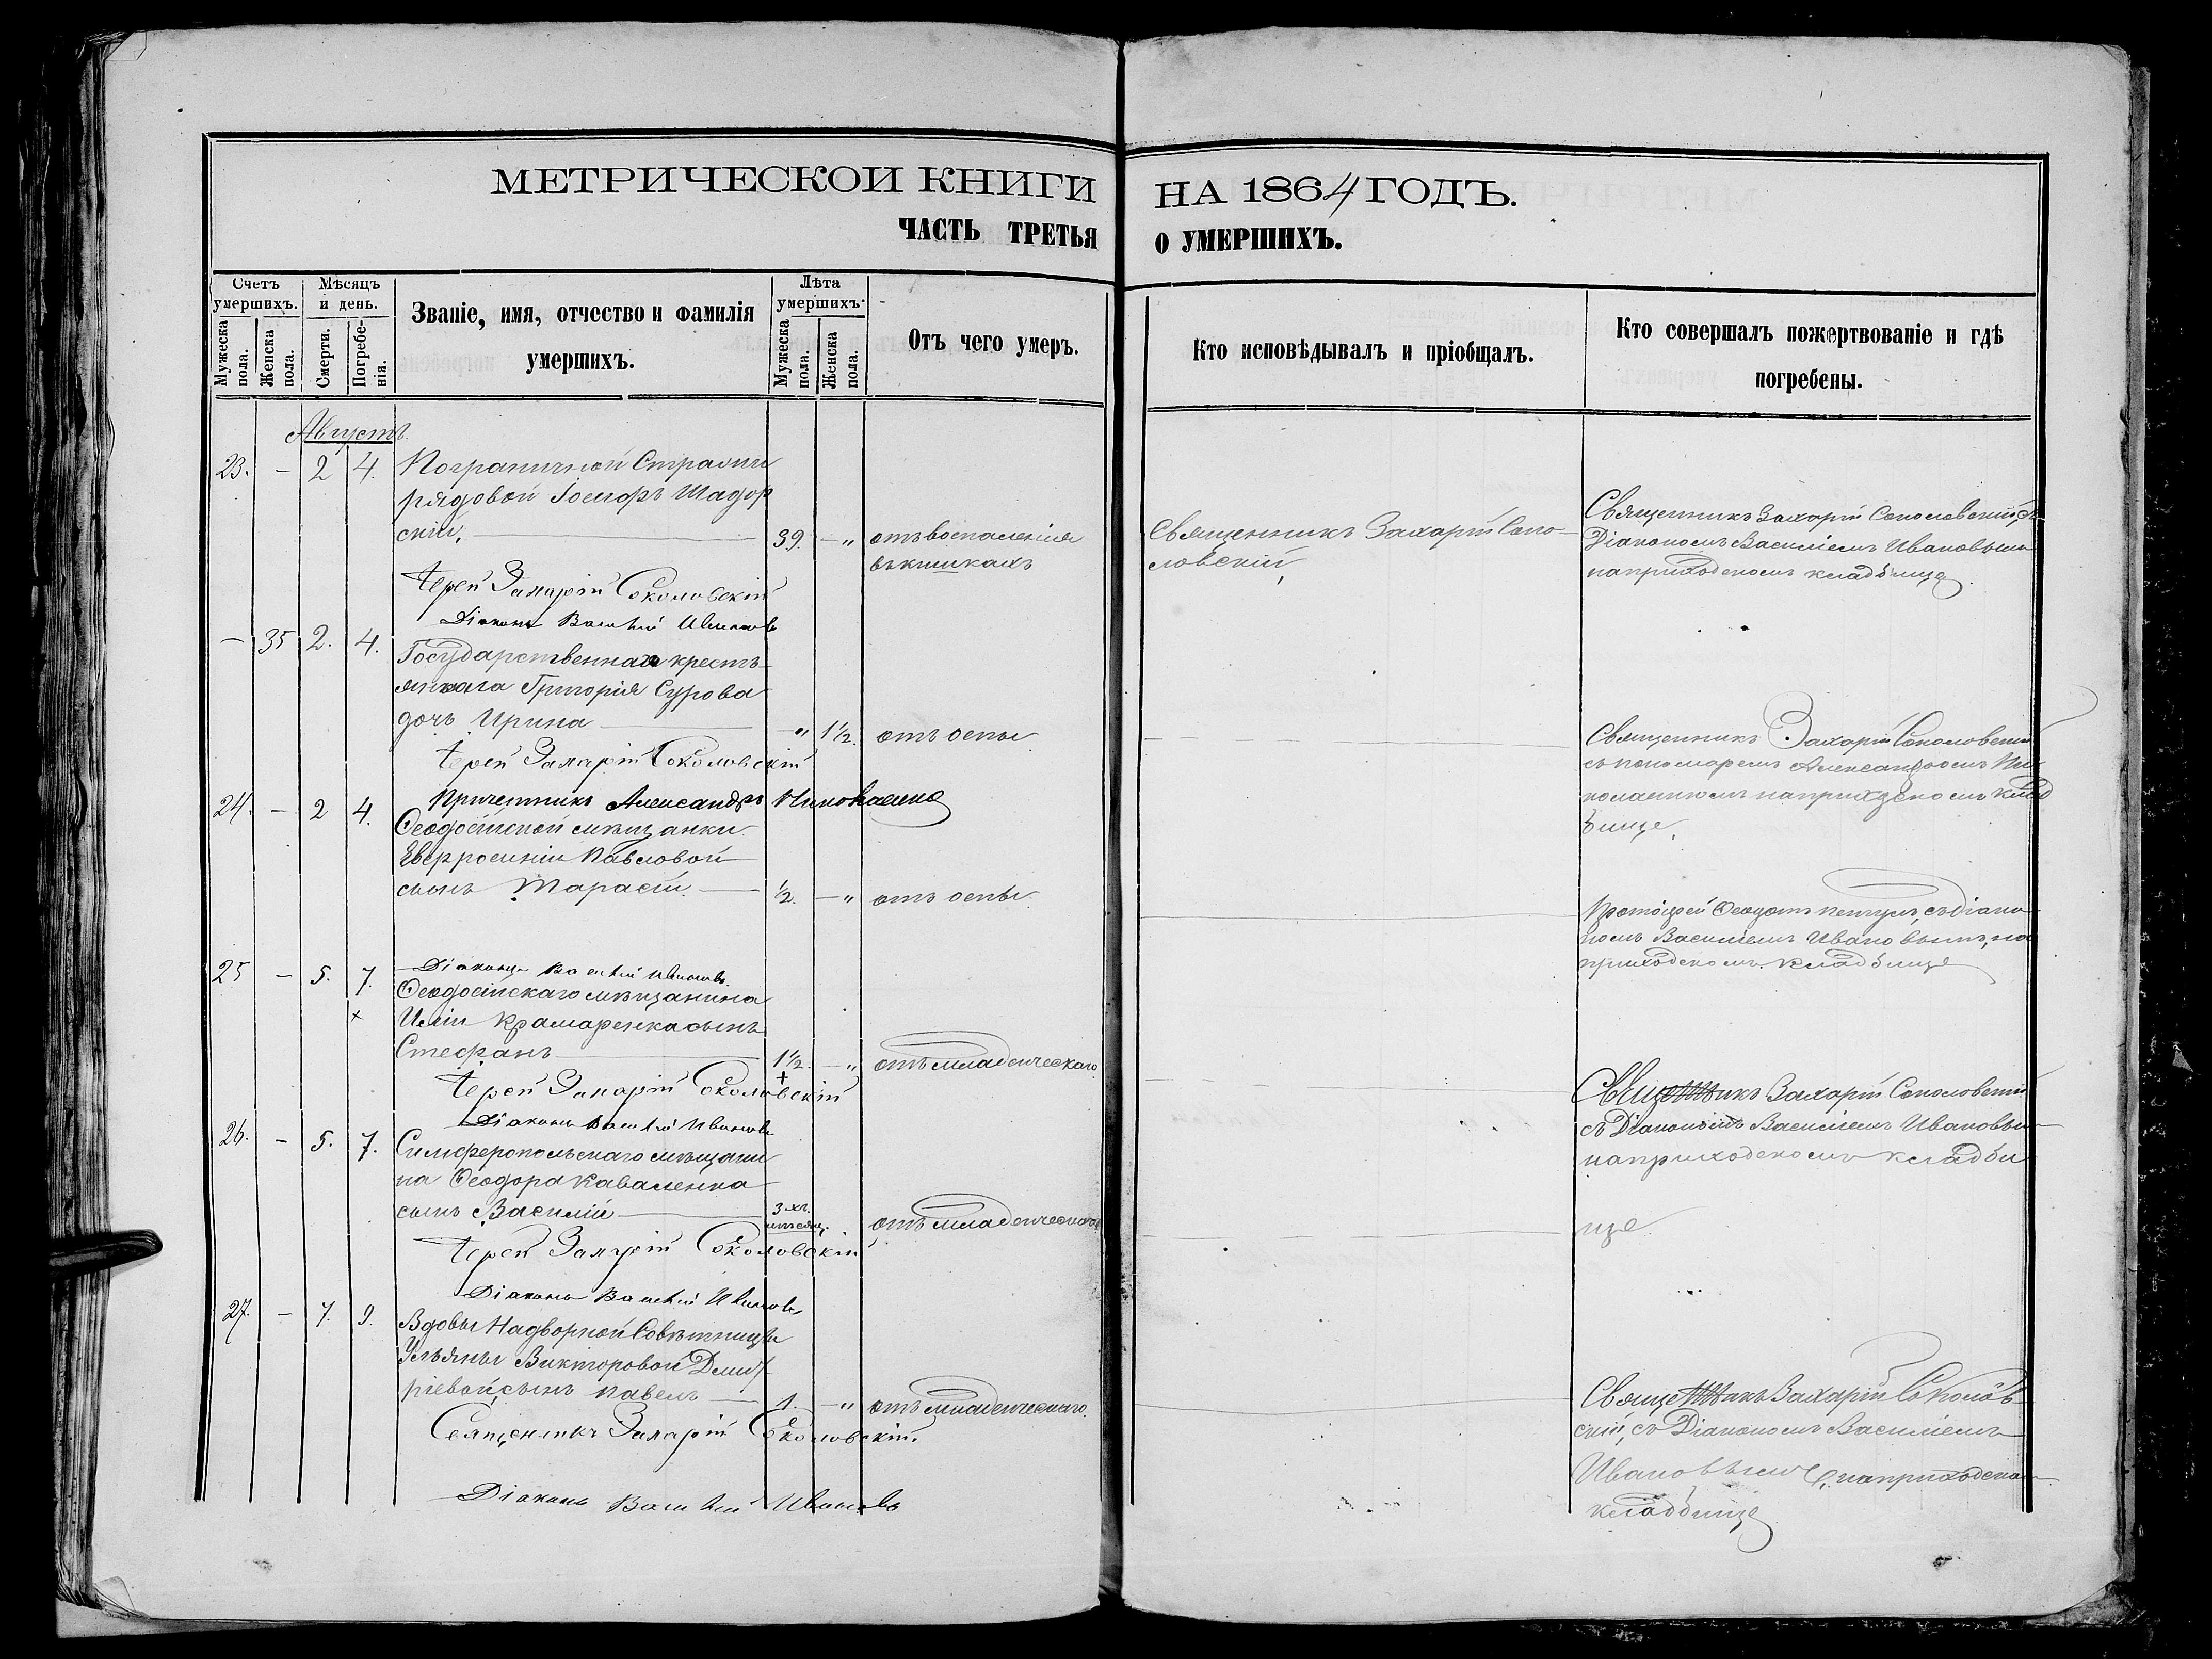 МЕТРИЧЕСКОЙ КНИГИ НА 1864 ГОДЪ.
ЧАСТЬ ТРЕТЬЯ О УМЕРШИХЪ.
Счетъ умершихъ.
Мужеска пола.
Женска пола.
Мѣсяцъ и день.
Смерти.
Погребенія.
Званіе, имя, отчество и фамилія
умершихъ.
Лѣта умершихъ.
Мужеска пола.
Женска пола.
Отъ чего умеръ.
Кто исповѣдывалъ и пріобщалъ.
Кто совершалъ пожертвованіе и гдѣ
погребены.
Августъ.
23. – 2 4. Пограничной Стражи
рядовой Іосифъ Шадор
скій, 39. – „ отъ воспаленія
въ кишкахъ
Священникъ Захарій Соко-
ловскій,
Священникъ Захарій Соколовскій, съ
Діакономъ Василіемъ Ивановымъ
на приходскомъ кладбище.
Іерей Захарій Соколовскій
Діаконъ Василій Ивановъ
– 35 2. 4. Государственнаго кресть-
янина Григорія Сурова
дочь Ирина – „ 1½. отъ оспы
Священникъ Захарій Соколовскій
съ пономаремъ Александромъ Ни-
на приходскомъ клад
бище.
Іерей Захарій Соколовскій
Причетникъ Александръ
24. – 2 4. Ѳеодосійской мѣщанки
Павловой
сынъ Тарасій ½. – „ отъ оспы.
Протоіерей Ѳеодотъ съ Діако-
номъ Василіемъ Ивановымъ, на
приходскомъ кладбище
Діаконъ Василій Ивановъ.
25 – 5. 7. Ѳеодосійскаго мѣщанина
× Иліи Крамаренка сынъ
Стефанъ 1½. – „ отъ младенческаго.
+
Священникъ Захарій Соколовскій
съ Діакономъ Василіемъ Ивановым
на приходскомъ кладби
Іерей Захарій Соколовскій
Діаконъ Василій Ивановъ
26. – 5. 7. Симферопольскаго мѣщани
на Ѳеодора Каваленка
сынъ Василій 3хъ. мѣсяц. отъ младенческаго
ще.
Іерей Захарій Соколовскій
Діаконъ Василій Ивановъ
27. – 7. 9. Вдовы Надворной Совѣтницы
Ульяны Викторовой Дмит
ріевой, сынъ Павелъ 1. – „ отъ младенческаго.
Священникъ Захарій Соколов
скій, съ Діакономъ Василіемъ
Ивановымъ, на приходско
кладбище
Священникъ Захарій Соколовскій.
Діаконъ Василій Ивановъ